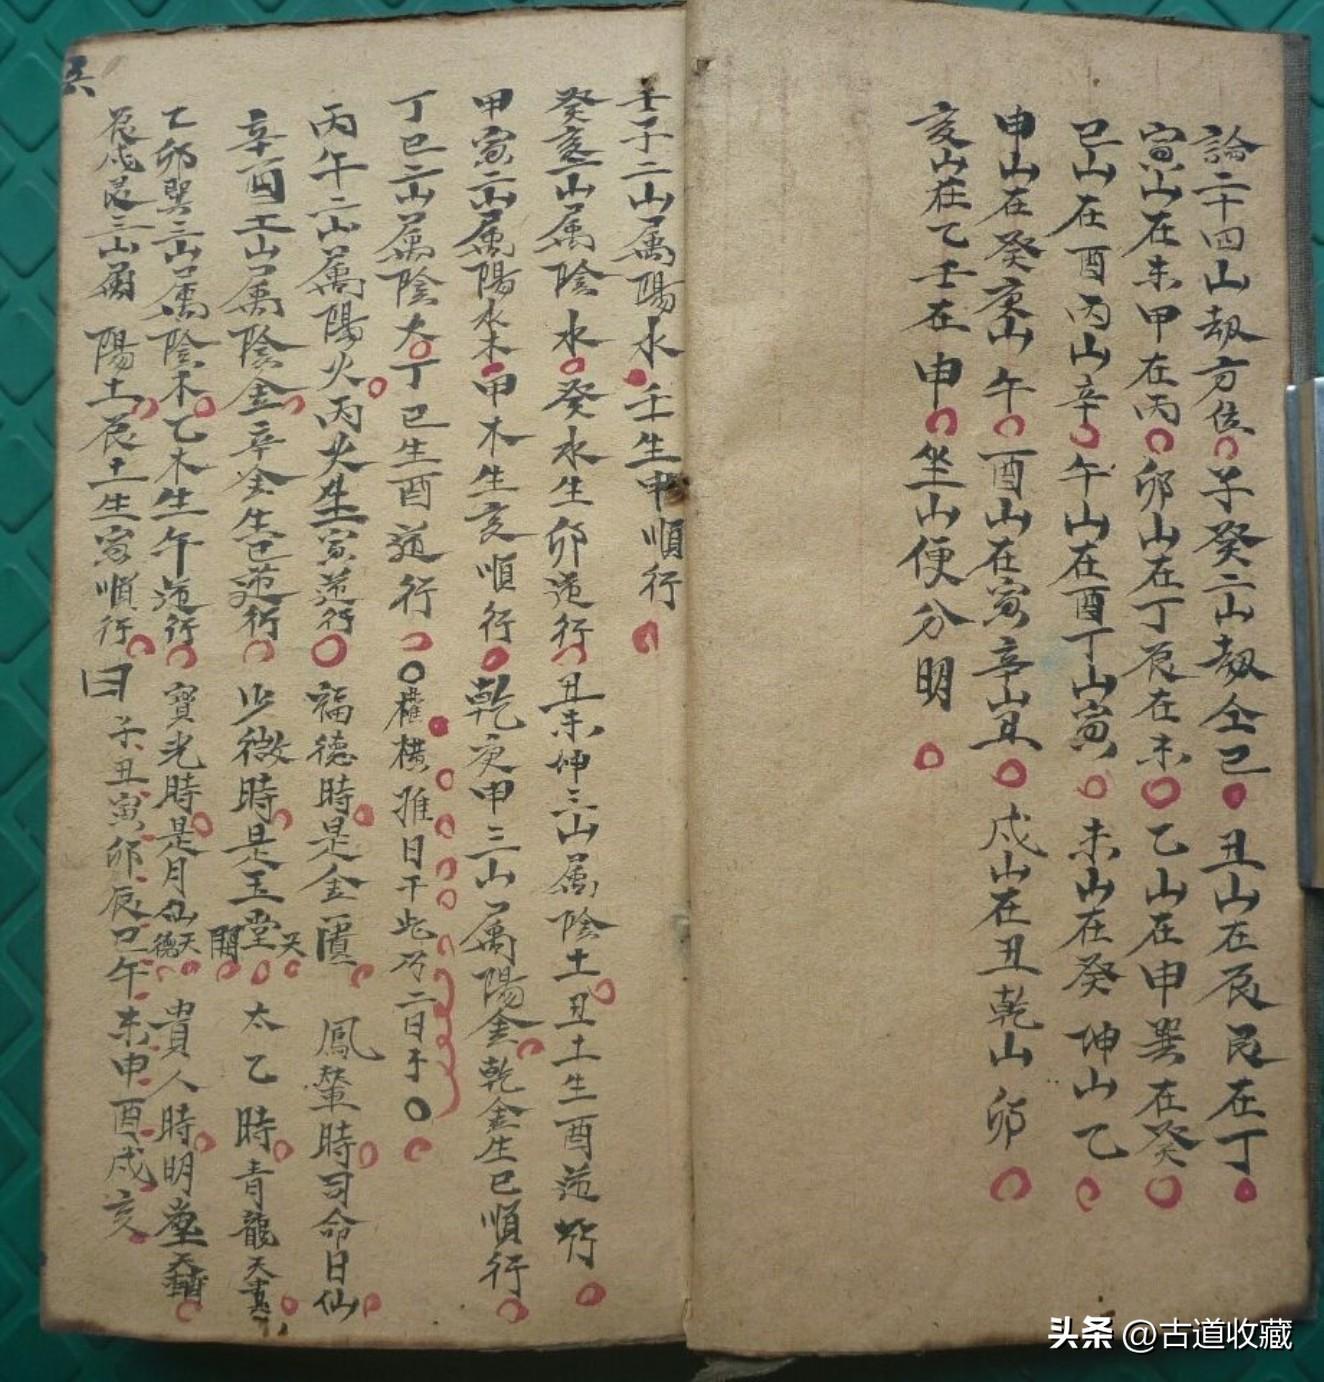 論二十四山劫方位子癸二山劫仝巳丑山在辰艮在丁
寅山在未甲在丙卯山在丁辰在未乙山在申巽在癸
巳山在酉丙山辛午山在酉丁山寅未山在癸坤山乙
申山在癸庚山午酉山在寅辛山丑戌山在丑乾山卯
亥山在乙壬在申坐山便分明
壬子二山属陽水壬生申順行
癸亥二山属陰水癸水生卯逆行丑未坤三山属陰土丑土生酉逆行
甲寅二山属陽水木甲木生亥順行乾庚申三山属陽金乾金生巳順行
丁巳二山属陰火丁巳生酉逆行權橫推日干此乃二日干
丙午二山属陽火丙火生寅逆行福德時是金匱鳳輦時司命日仙
辛酉二山属陰金辛金生巳逆行少微時是玉堂天開太乙時青龍天貴
乙卯巽三山属陰木乙木生午逆行寶光時是月仙天德貴人時明堂
辰戌艮三山属陽土辰土生寅順行曰子丑寅卯辰巳午未申酉戌亥
头条 @古道收藏